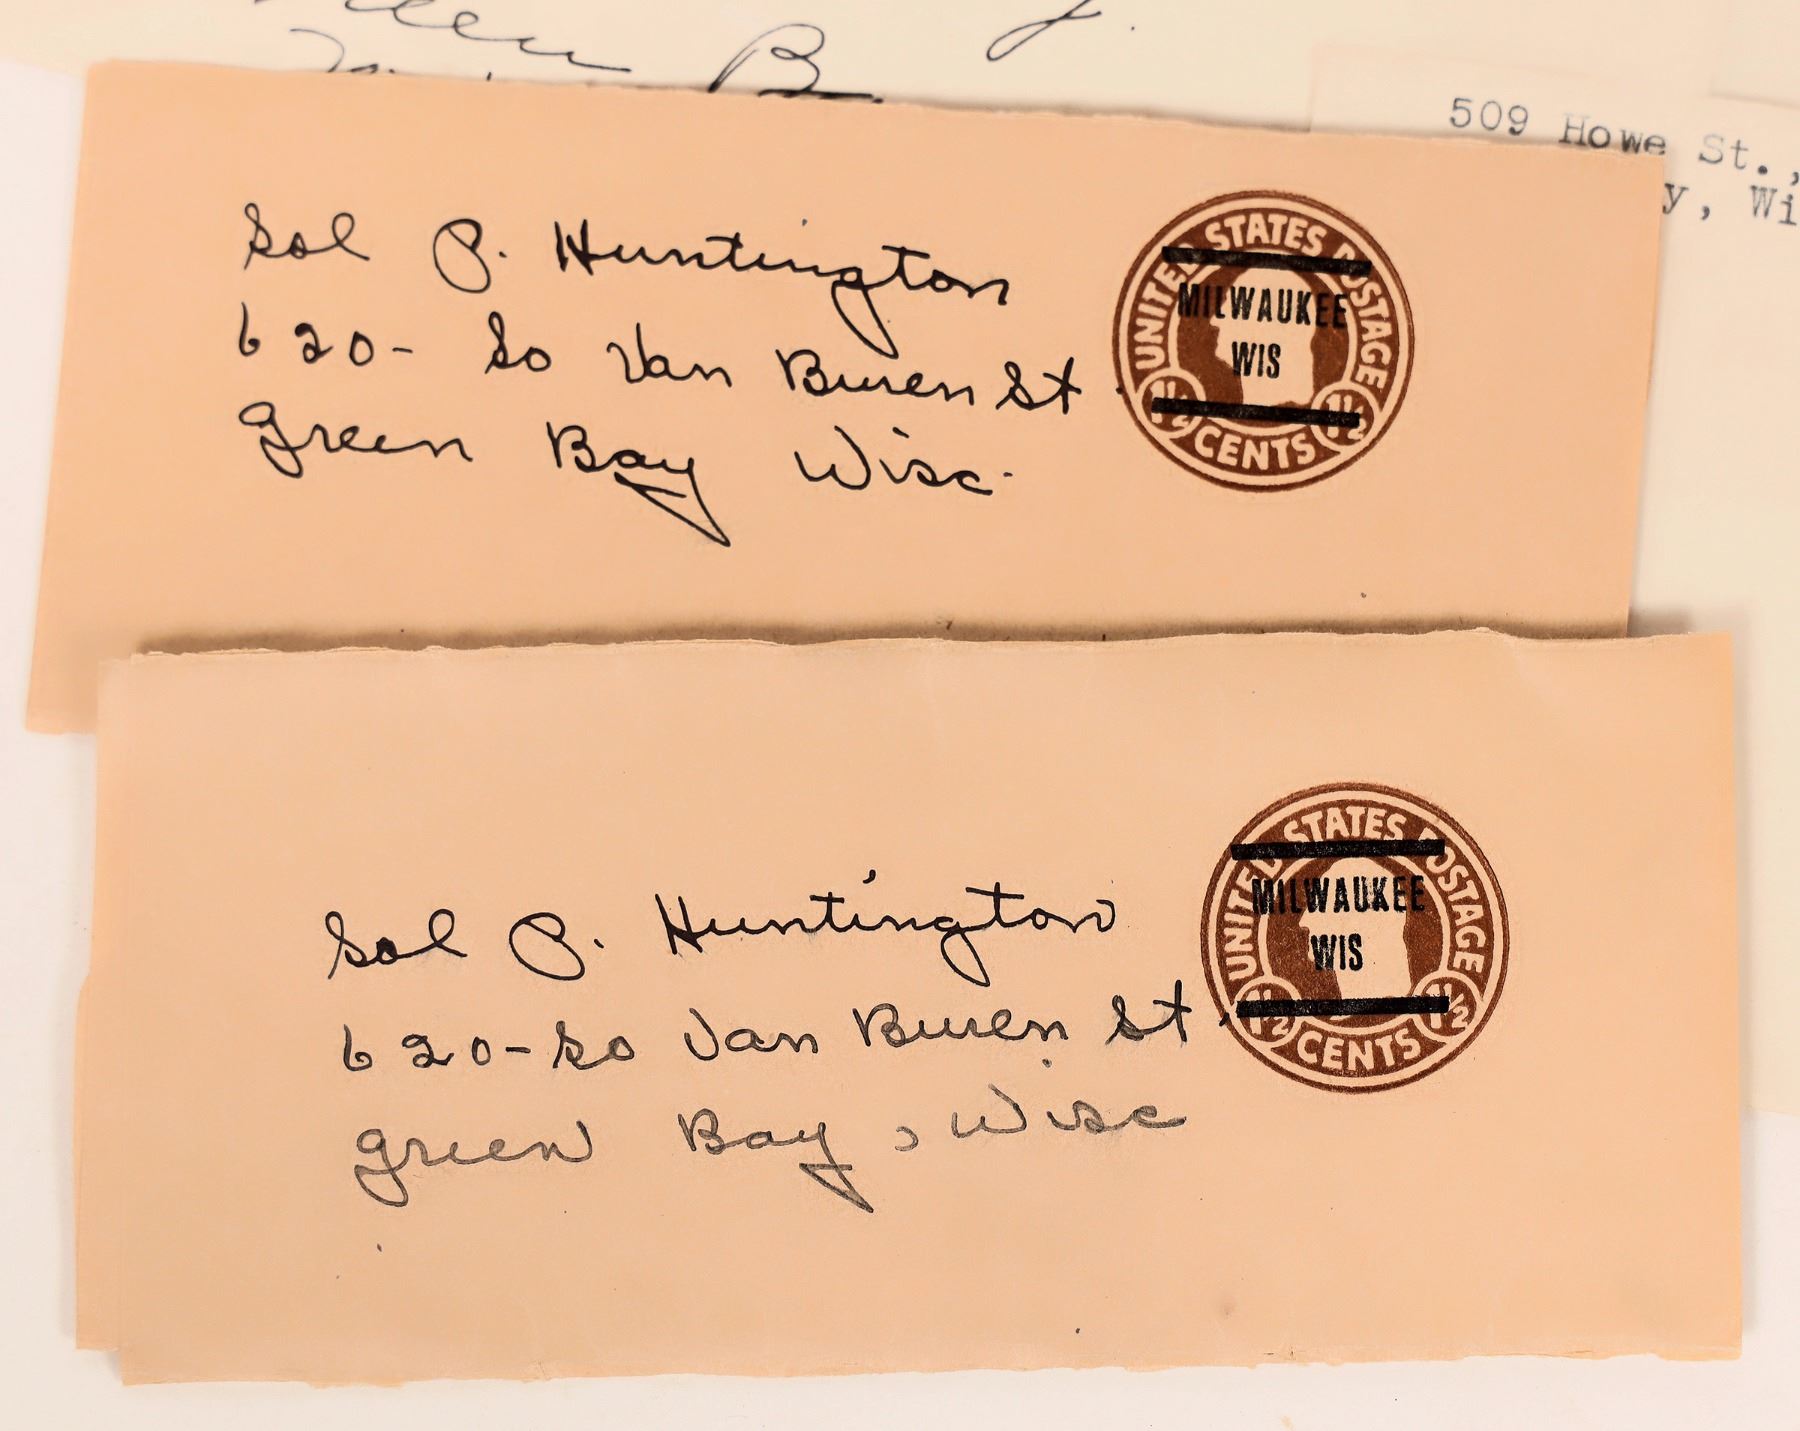 B.
509 Howe St.,
y, Wi
Sol P. Huntington
620- So Van Buren St.
Green Bay Wisc.
UNITED STATES POSTAGE
MILWAUKEE
WIS
1½ 1½
CENTS
Sol P. Huntington
620-So Van Buren St.
Green Bay, Wisc
UNITED STATES POSTAGE
MILWAUKEE
WIS
1½ 1½
CENTS